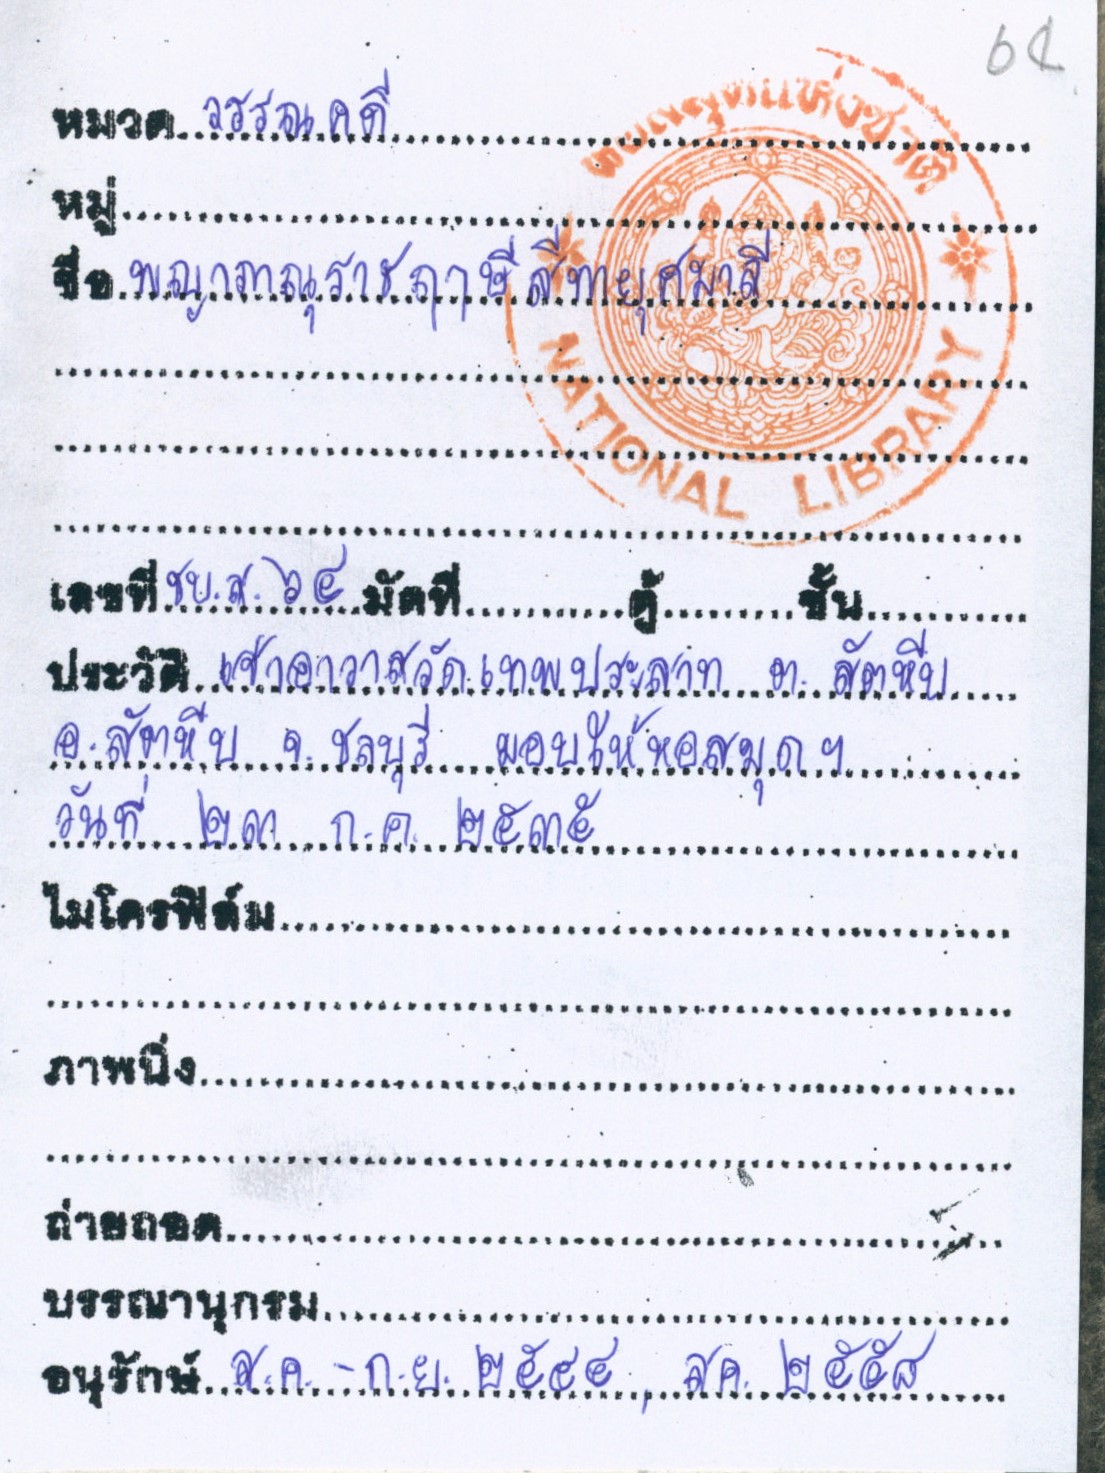 ๖๔
หอสมุดแห่งชาติ
NATIONAL LIBRARY
หมวด วรรณคดี
หมู่
ชื่อ พญาภาณุราชฤาษีสี่ทายุศมาลี
เลขที่ ชบ.ส. ๖๔ มัดที่ ตู้ ชั้น
ประวัติ เจ้าอาวาสวัดเทพประสาท ต. สัตหีบ
อ. สัตหีบ จ. ชลบุรี มอบให้หอสมุดฯ
วันที่ ๒๓ ก.ค. ๒๕๓๕
ไมโครฟิล์ม
ภาพนิ่ง
ถ่ายถอด
บรรณานุกรม
อนุรักษ์ ส.ค. - ก.ย. ๒๕๔๔ , สค. ๒๕๕๘